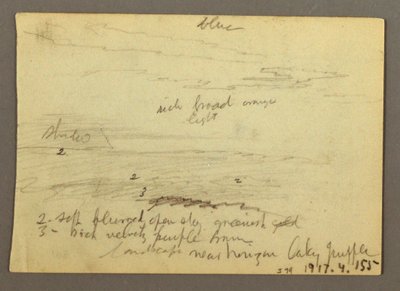 blue
rich broad orange
light
2
2 2
3
2. soft blurred open sky greenish gold
3 - rich velvety purple brown
landscape near horizon
379 1917.4.155